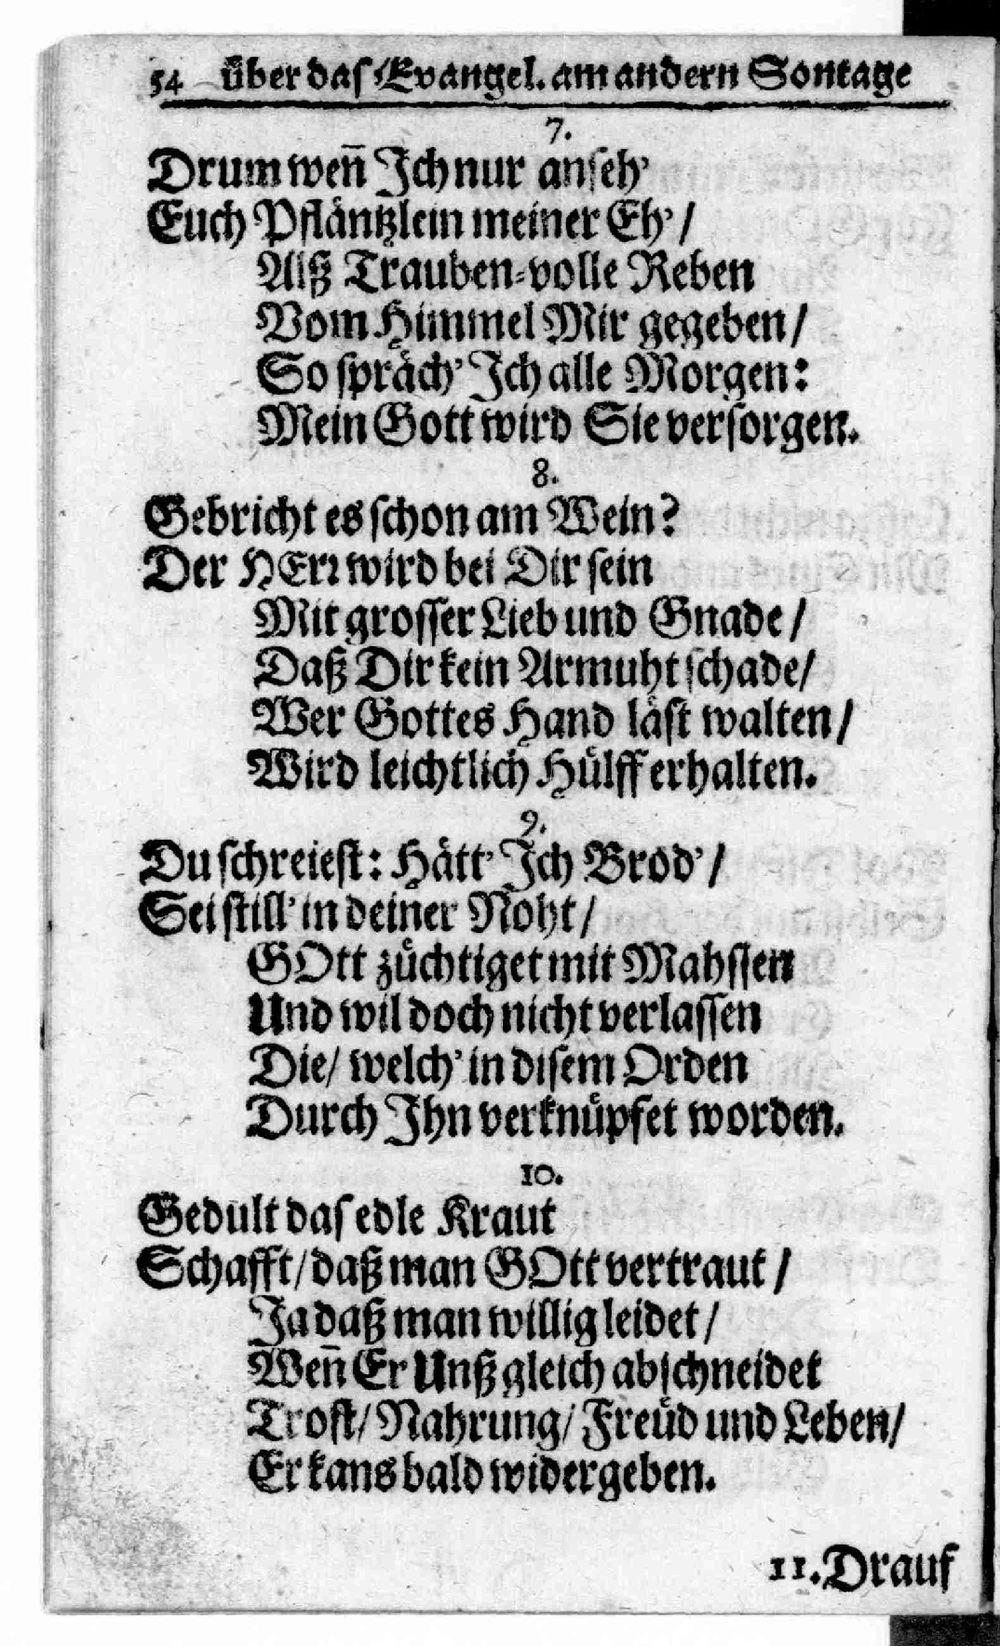 54 über das Evangel. am andern Sontage
7.
Drum weñ Ich nur anseh'
Euch Pfläntzlein meiner Eh' /
Alß Trauben-volle Reben
Vom Himmel Mir gegeben /
So spräch' Ich alle Morgen:
Mein Gott wird Sie versorgen.
8.
Gebricht es schon am Wein?
Der HErr wird bei Dir sein
Mit grosser Lieb und Gnade /
Daß Dir kein Armuht schade /
Wer Gottes Hand läst walten /
Wird leichtlich Hülff erhalten.
9.
Du schreiest: Hätt' Ich Brod' /
Sei still' in deiner Noht /
GOtt züchtiget mit Mahssen
Und wil doch nicht verlassen
Die / welch' in disem Orden
Durch Ihn verknüpfet worden.
10.
Gedult das edle Kraut
Schafft / daß man GOtt vertraut /
Ja daß man willig leidet /
Weñ Er Unß gleich abschneidet
Trost / Nahrung / Freüd und Leben /
Er kans bald widergeben.
11. Drauf